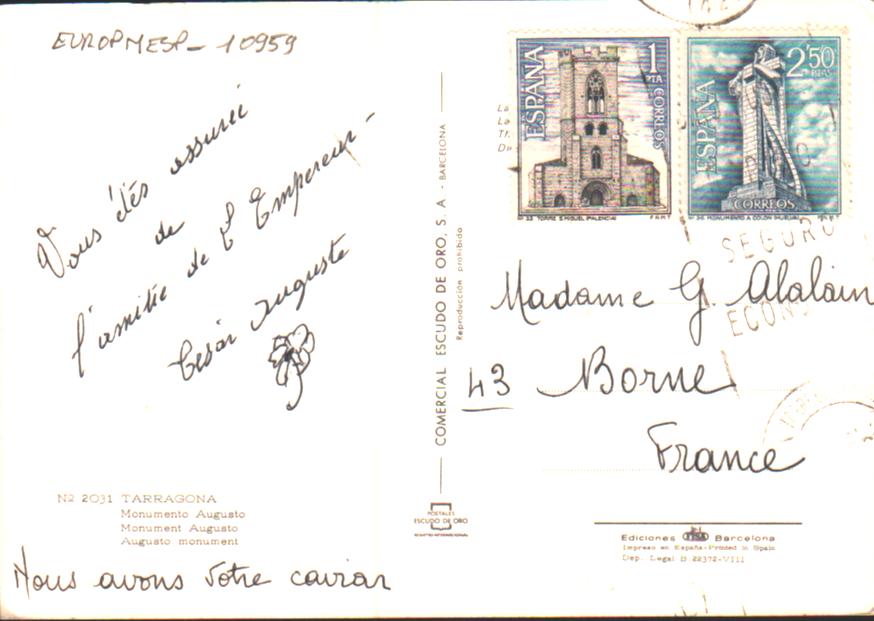 EUROPMESP-10959
Vous êtes assurée
de
l'amitié de l'Empereur-
César Auguste
Nº 2031 TARRAGONA
Monumento Augusto
Monument Augusto
Augusto monument
Nous avons votre caviar
COMERCIAL ESCUDO DE ORO, S. A. - BARCELONA
Reproducción prohibida
POSTALES
ESCUDO DE ORO
ESPAÑA
1
PTA
CORREOS
TORRE S. MIGUEL (PALENCIA)
F.N.M.T.
ESPAÑA
2'50
PTAS
CORREOS
MONUMENTO A COLON (HUELVA)
F.N.M.T.
SEGURO
ECON
Madame G. Alalain
43 Borne
France
Ediciones FISA Barcelona
Impreso en España-Printed in Spain
Dep. Legal B. 22372-VIII